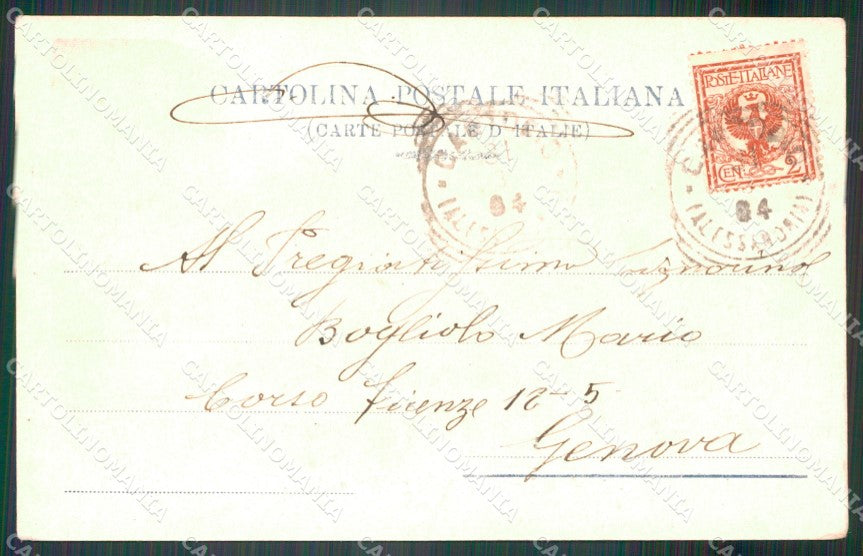 CARTOLINA POSTALE ITALIANA
(CARTE POSTALE D'ITALIE)
POSTE ITALIANE
CEN. 2
84
(ALESSANDRIA)
84
(ALESS
Al Pregiatissimo Signorino
Bogliolo Mario
Corso Firenze 12-5
Genova
CARTOLINOMANIA